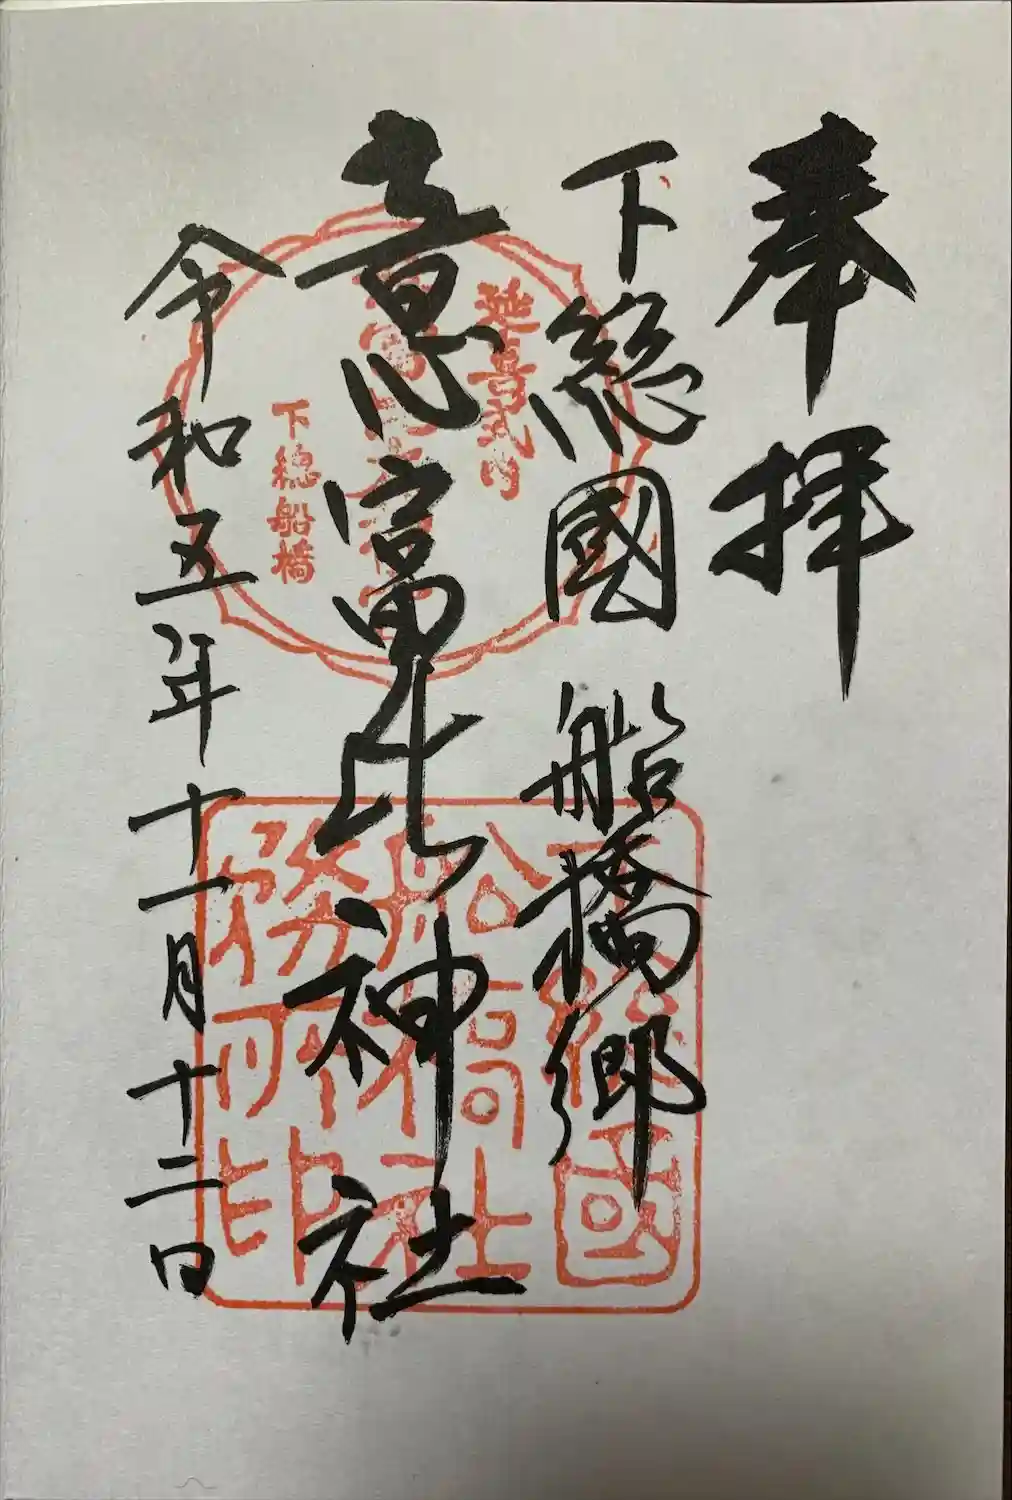 奉拝
下總國船橋郷
意富比神社
令和五年十一月十二日
延喜式内
下總船橋